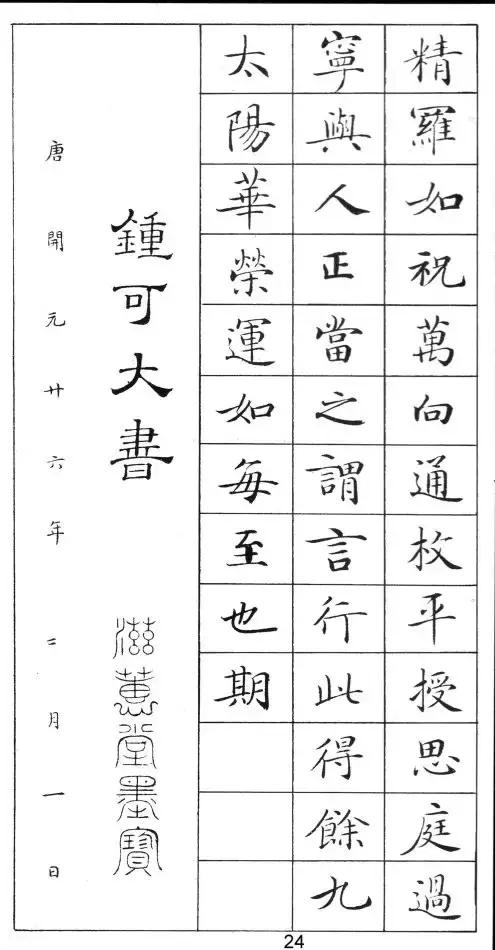 精羅如祝萬向通枚平授思庭過
寧與人正當之謂言行此得餘九
太陽華榮運如每至也期
鍾可大書
滋蕙堂墨寶
唐開元廿六年二月一日
24